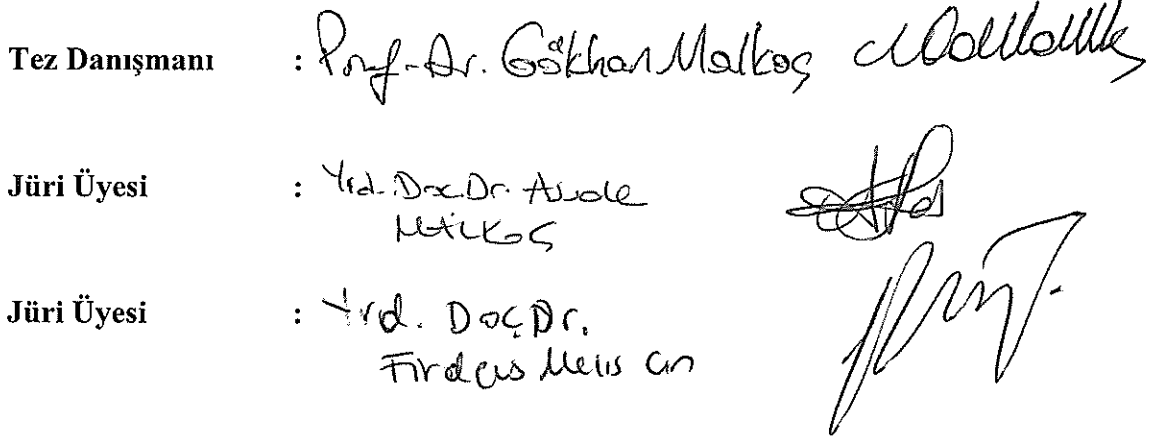 Tez Danışmanı : Prof. Dr. Gökhan Malkoç
Jüri Üyesi : Yrd. Doç. Dr. Asude
MALKOÇ
Jüri Üyesi : Yrd. Doç Dr.
Firdevs Melis Cin